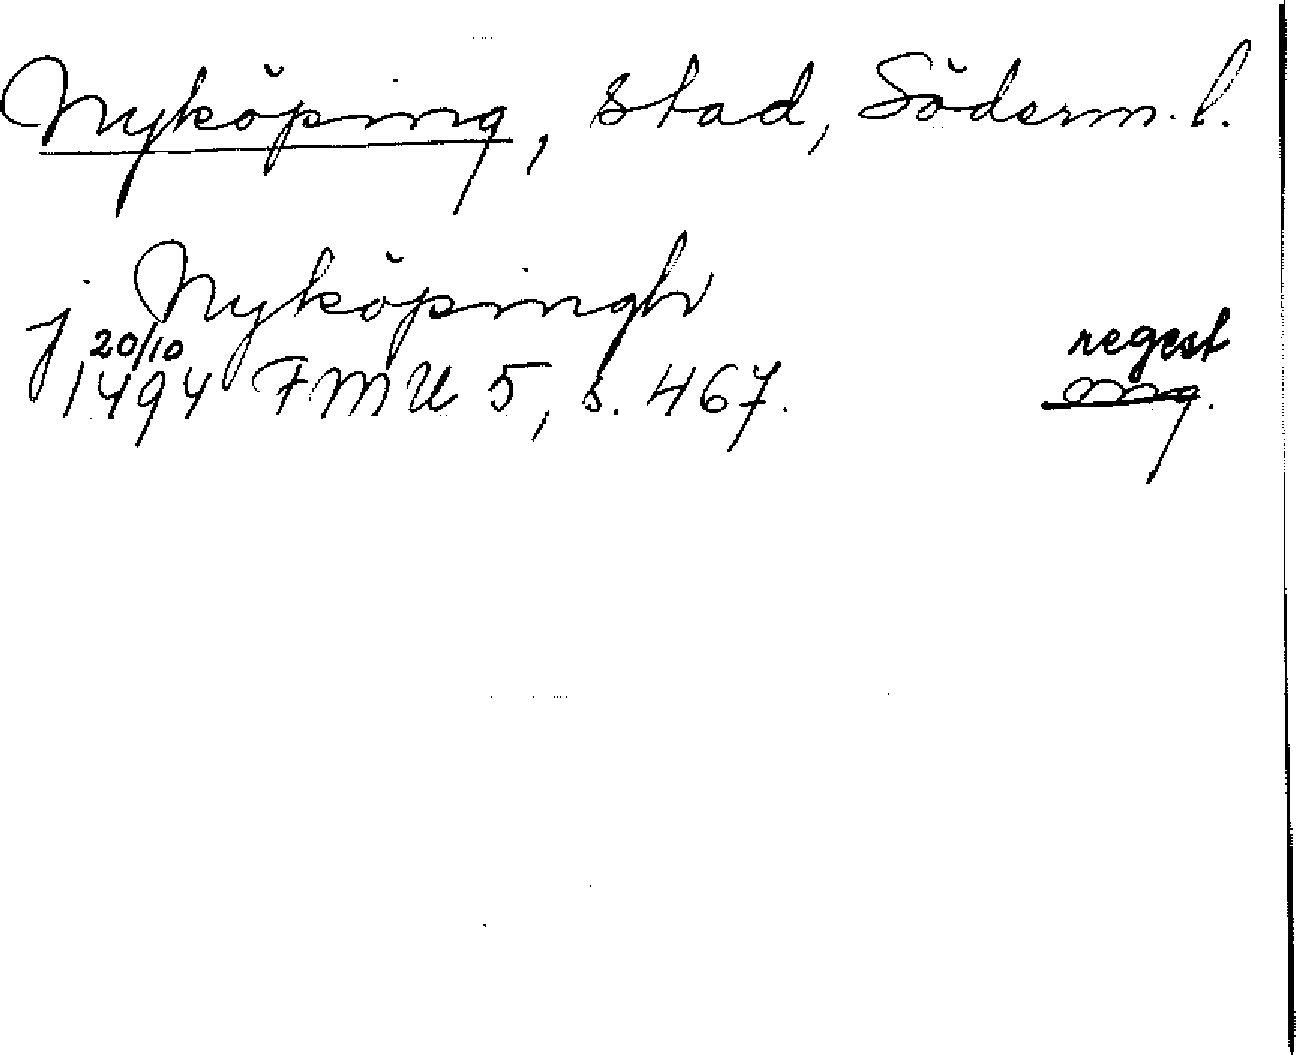 Nyköping, stad, Söderm. l.
j Nyköpingh
20/10 regest
1494 FMU 5, s. 467. omg.